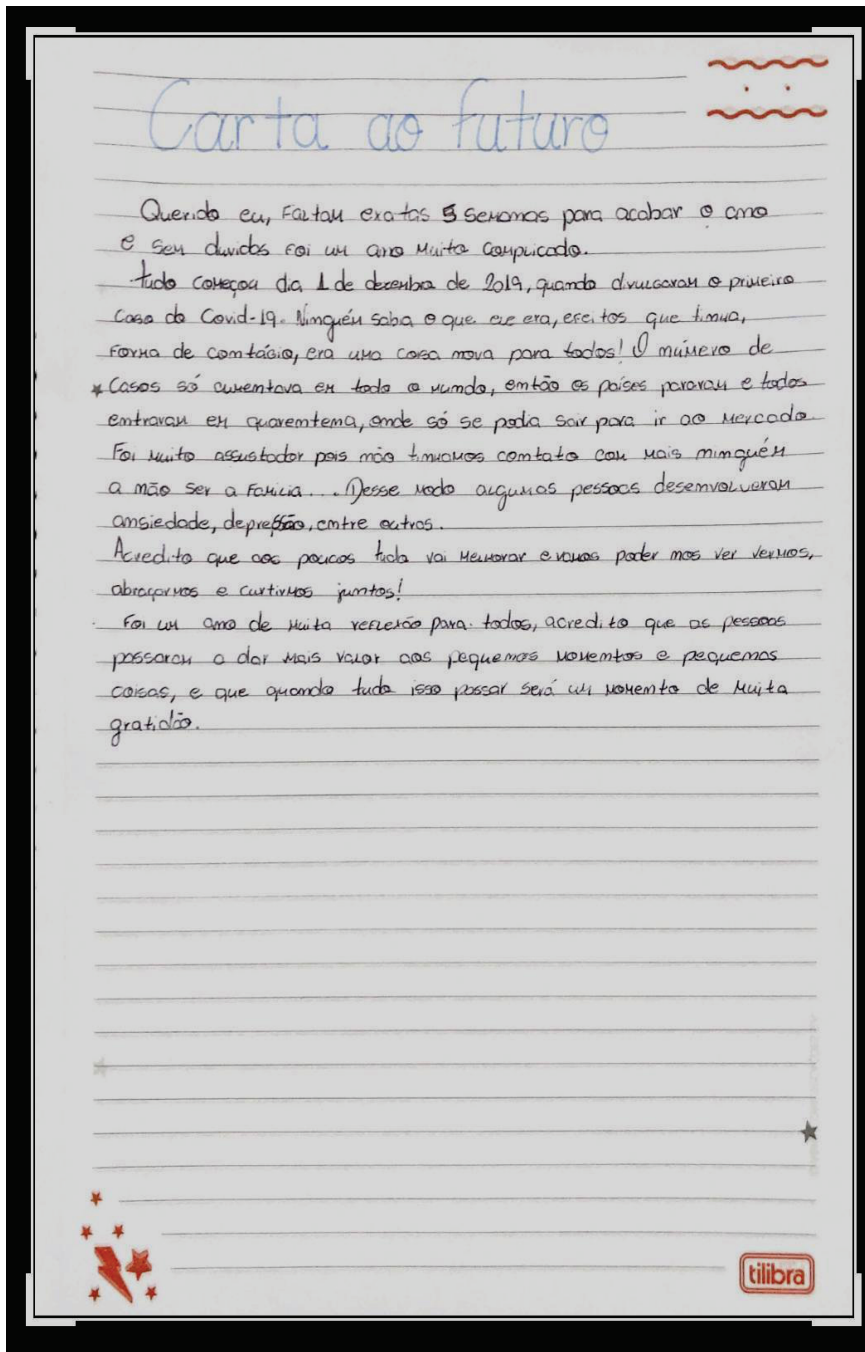 Carta ao futuro
Querido eu, Faltam exatas 5 semanas para acabar o ano
e sem duvidas foi um ano muito complicado.
tudo começou dia 1 de dezembro de 2019, quando divulgaram o primeiro
caso do Covid-19. Ninguém saba o que ele era, efeitos que tinha,
forma de contágio, era uma coisa nova para todos! O número de
casos só aumentava em todo o mundo, então os países pararam e todos
entraram em quarentena, onde só se podia sair para ir ao mercado.
Foi muito assustador pois não tinhamos contato com mais ninguém
a não ser a Família... Desse modo algumas pessoas desenvolveram
ansiedade, depressão, entre outros.
Acredito que aos poucos tudo vai melhorar e vamos poder nos ver vermos,
abraçarmos e curtirmos juntos!
Foi um ano de muita reflexão para todos, acredito que as pessoas
passaram a dar mais valor aos pequenos momentos e pequenas
coisas, e que quando tudo isso passar será um momento de muita
gratidão.
tilibra